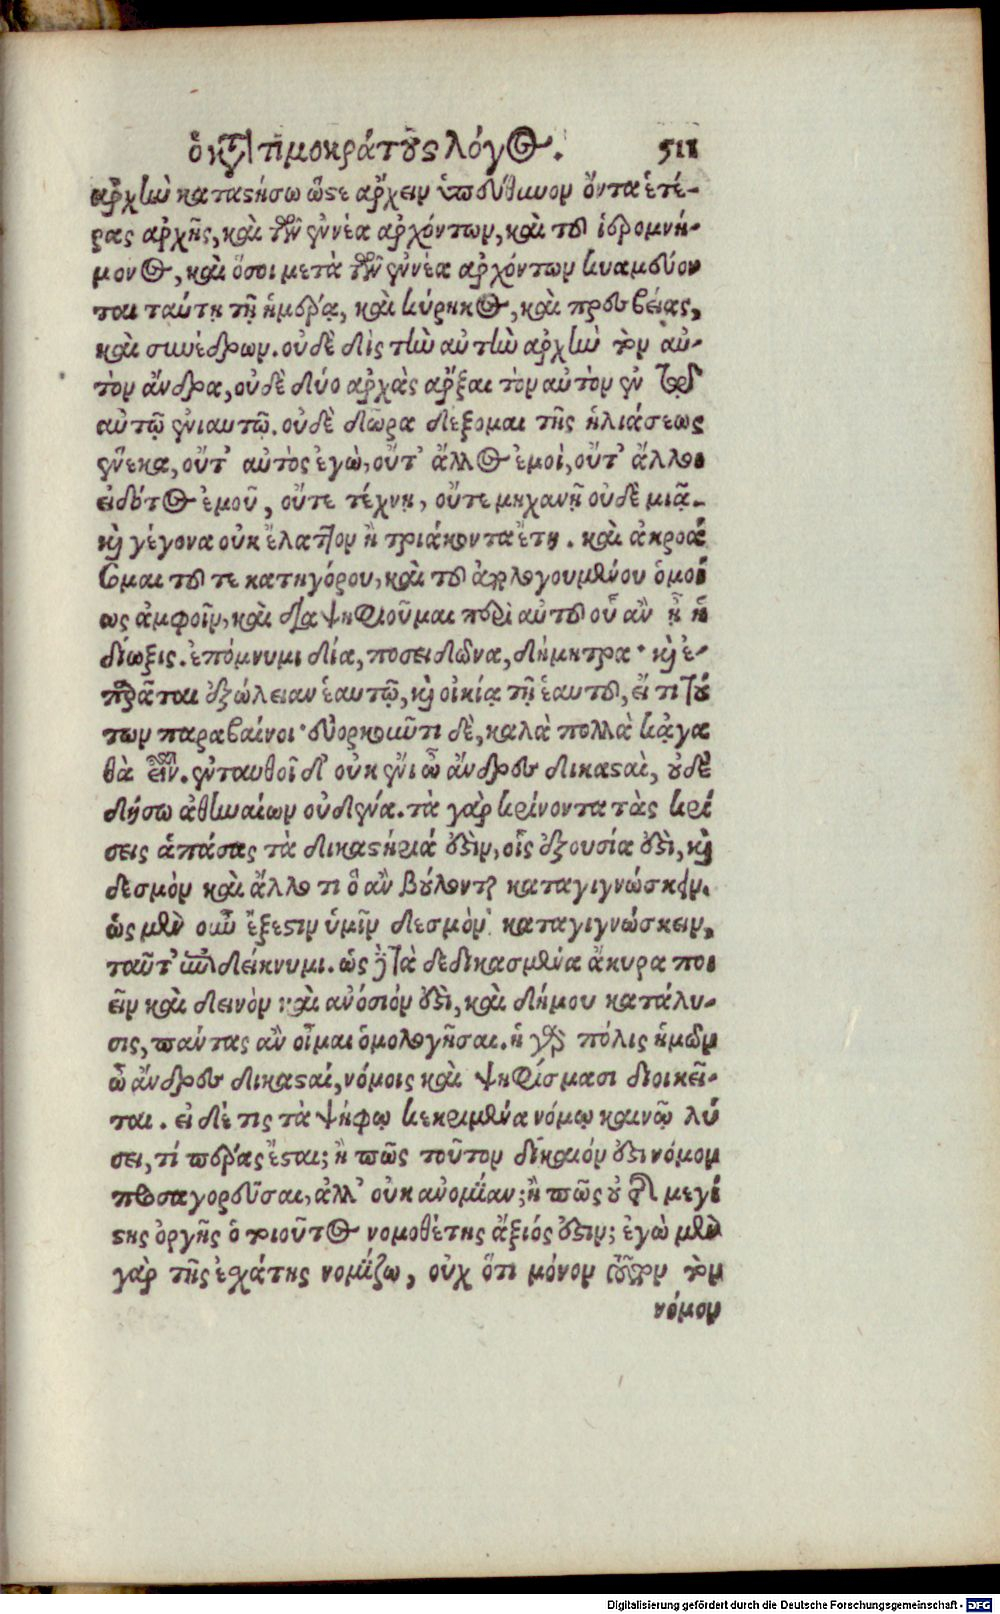 ὁ κατὰ τιμοκράτους λόγος. 511
ἀρχὴν καταστήσω ὥστε ἄρχειν ὑπεύθυνον ὄντα ἑτέ-
ρας ἀρχῆς, καὶ τῶν ἐννέα ἀρχόντων, καὶ τοῦ ἱερομνή-
μονος, καὶ ὅσοι μετὰ τῶν ἐννέα ἀρχόντων κυαμεύον
ται ταύτῃ τῇ ἡμέρᾳ, καὶ κύρηκος, καὶ πρεσβείας,
καὶ συνέδρων. οὐδὲ δὶς τὴν αὐτὴν ἀρχὴν τὸν αὐ-
τὸν ἄνδρα, οὐδὲ δύο ἀρχὰς ἄρξαι τὸν αὐτὸν ἐν τῷ
αὐτῷ ἐνιαυτῷ. οὐδὲ δῶρα δέξομαι τῆς ἡλιάσεως
ἕνεκα, οὔτ' αὐτὸς ἐγὼ, οὔτ' ἄλλος ἐμοὶ, οὔτ' ἄλλοι
εἰδότος ἐμοῦ, οὔτε τέχνῃ, οὔτε μηχανῇ οὐδὲ μιᾷ.
καὶ γέγονα οὐκ ἔλαττον ἢ τριάκοντα ἔτη. καὶ ἀκροά
σομαι τοῦ τε κατηγόρου, καὶ τοῦ ἀπολογουμένου ὁμοί
ως ἀμφοῖν, καὶ διαψηφιοῦμαι περὶ αὐτοῦ οὗ ἂν ᾖ ἡ
δίωξις. ἐπόμνυμι δία, ποσειδῶνα, δήμητρα· καὶ ἐ-
παρᾶται ἐξώλειαν ἑαυτῷ, καὶ οἰκίᾳ τῇ ἑαυτοῦ, εἴ τι τού
των παραβαίνοι· εὐορκοῦντι δὲ, καλὰ πολλὰ κἀγα
θὰ εἶναι. ἐνταυθοῖ δ' οὐκ ἔνι ὦ ἄνδρες δικασταὶ, οὐδὲ
δήσω ἀθηναίων οὐδένα. τὰ γὰρ κρίνοντα τὰς κρί
σεις ἁπάσας τὰ δικαστήριά ἐστιν, οἷς ἐξουσία ἐστὶ, καὶ
δεσμὸν καὶ ἄλλο τι ὃ ἂν βούλωνται καταγιγνώσκειν.
ὡς μὲν οὖν ἔξεστιν ὑμῖν δεσμὸν καταγιγνώσκειν,
ταῦτ' ἐπιδείκνυμι. ὡς δὲ τὰ δεδικασμένα ἄκυρα ποι
εῖν καὶ δεινὸν καὶ ἀνόσιόν ἐστὶ, καὶ δήμου κατάλυ-
σις, πάντας ἂν οἶμαι ὁμολογῆσαι. ἡ γὰρ πόλις ἡμῶν
ὦ ἄνδρες δικασταί, νόμοις καὶ ψηφίσμασι διοικεῖ-
ται. εἰ δέ τις τὰ ψήφῳ κεκριμένα νόμῳ καινῷ λύ
σει, τί πέρας ἔσται; ἢ πῶς τοῦτον δίκαιόν ἐστι νόμον
προσαγορεῦσαι, ἀλλ' οὐκ ἀνομίαν; ἢ πῶς οὐ τῆς μεγί
στης ὀργῆς ὁ τοιοῦτος νομοθέτης ἄξιός ἐστιν; ἐγὼ μὲν
γὰρ τῆς ἐσχάτης νομίζω, οὐχ ὅτι μόνον τοῦτον τὸν
νόμον
Digitalisierung gefördert durch die Deutsche Forschungsgemeinschaft - DFG